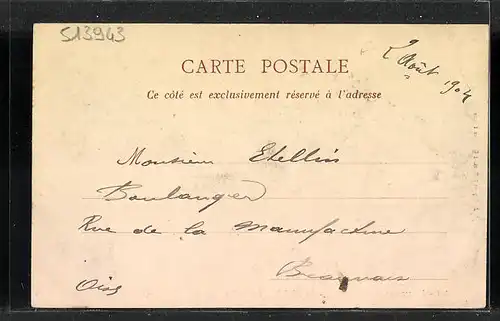 513943
2 Août 1904
CARTE POSTALE
Ce côté est exclusivement réservé à l'adresse
Monsieur Etellin
Boulanger
Rue de la Manufacture
Beauvais
Oise